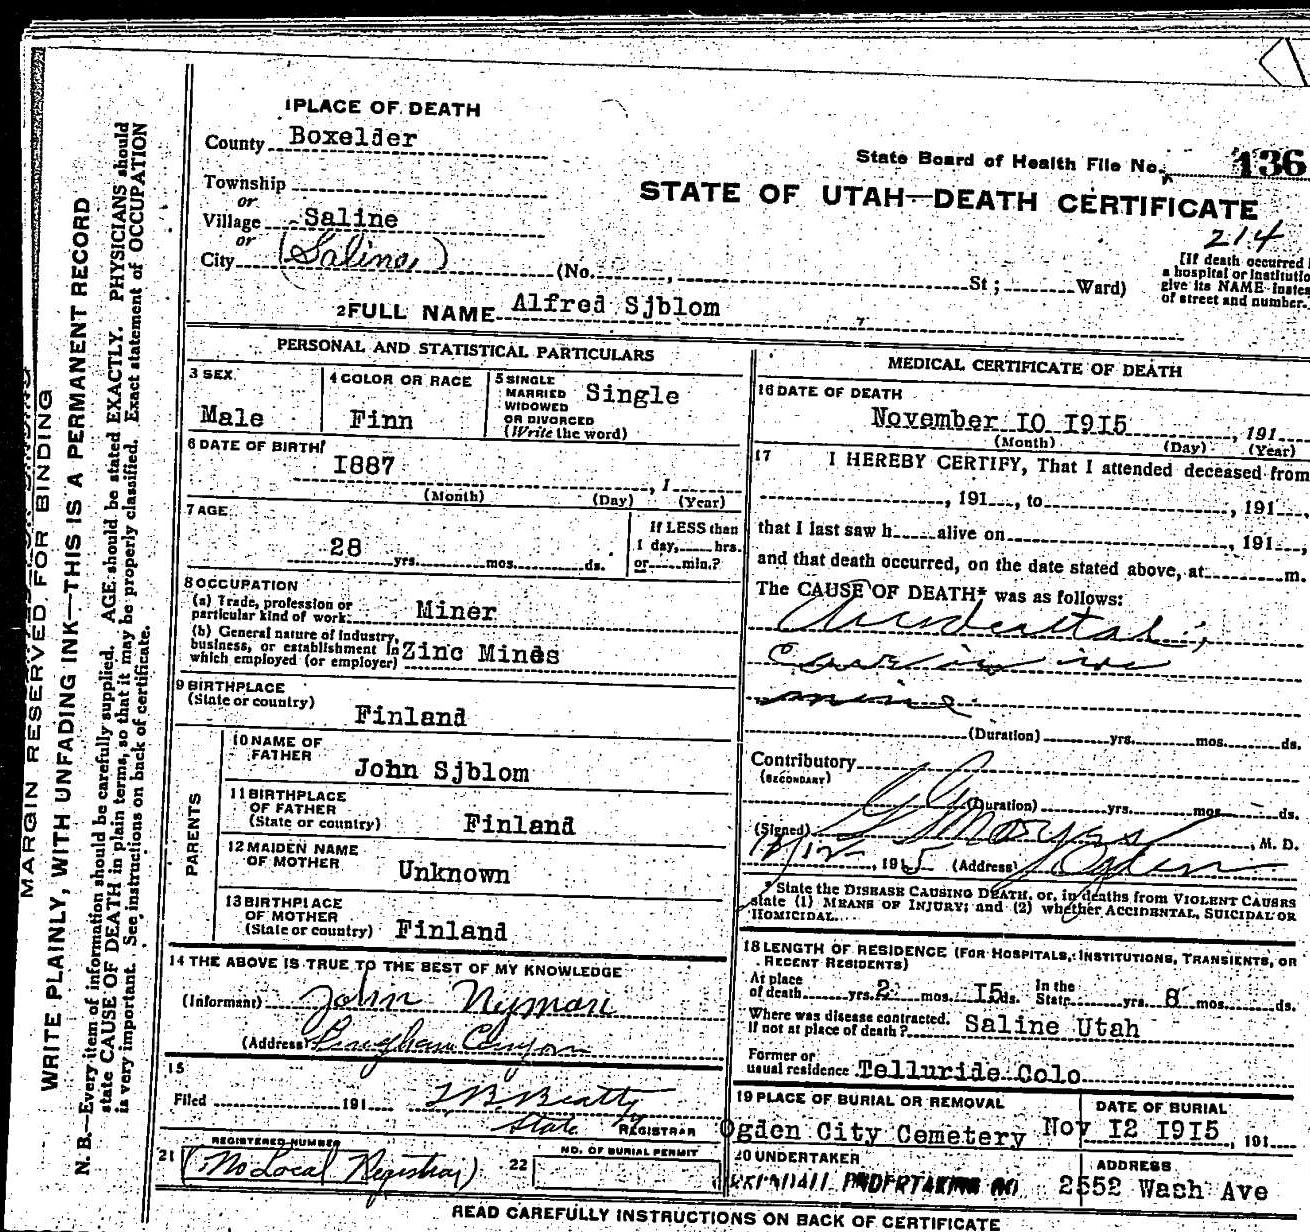 MARGIN RESERVED FOR BINDING
WRITE PLAINLY, WITH UNFADING INK—THIS IS A PERMANENT RECORD
N. B.—Every item of information should be carefully supplied. AGE should be stated EXACTLY. PHYSICIANS should
state CAUSE OF DEATH in plain terms, so that it may be properly classified. Exact statement of OCCUPATION
is very important. See instructions on back of certificate.
1 PLACE OF DEATH
County Boxelder
Township
or
Village Saline
or
City (Salina)
(No. , St ; Ward)
State Board of Health File No. 136
STATE OF UTAH—DEATH CERTIFICATE
214
[If death occurred
a hospital or institutio
give its NAME instea
of street and number.
2 FULL NAME Alfred Sjblom
PERSONAL AND STATISTICAL PARTICULARS
3 SEX
Male
4 COLOR OR RACE
Finn
5 SINGLE
MARRIED
WIDOWED
OR DIVORCED
(Write the word)
Single
6 DATE OF BIRTH
I887
, 1
(Month) (Day) (Year)
7 AGE
28 yrs. mos. ds.
If LESS than
1 day, hrs.
or min.?
8 OCCUPATION
(a) Trade, profession or
particular kind of work Miner
(b) General nature of Industry,
business, or establishment in
which employed (or employer) Zinc Mines
9 BIRTHPLACE
(State or country)
Finland
PARENTS
10 NAME OF
FATHER
John Sjblom
11 BIRTHPLACE
OF FATHER
(State or country) Finland
12 MAIDEN NAME
OF MOTHER
Unknown
13 BIRTHPLACE
OF MOTHER
(State or country) Finland
14 THE ABOVE IS TRUE TO THE BEST OF MY KNOWLEDGE
(Informant) John Nyman
(Address) Bingham Canyon
15
Filed 191 T B Beatty
State REGISTRAR
21 REGISTERED NUMBER
(No Local Registrar)
22 NO. OF BURIAL PERMIT
MEDICAL CERTIFICATE OF DEATH
16 DATE OF DEATH
November I0 I9I5 , 191
(Month) (Day) (Year)
17 I HEREBY CERTIFY, That I attended deceased from
, 191 , to , 191 ,
that I last saw h alive on , 191 ,
and that death occurred, on the date stated above, at m.
The CAUSE OF DEATH* was as follows:
Accidental;
Cave in in
mine
(Duration) yrs. mos. ds.
Contributory
(SECONDARY)
(Duration) yrs. mos. ds.
(Signed) , M. D.
, 1915 (Address) Ogden
* State the DISEASE CAUSING DEATH, or, in deaths from VIOLENT CAUSES
state (1) MEANS OF INJURY; and (2) whether ACCIDENTAL, SUICIDAL OR
HOMICIDAL.
18 LENGTH OF RESIDENCE (FOR HOSPITALS, INSTITUTIONS, TRANSIENTS, OR
RECENT RESIDENTS)
At place
of death yrs. 2 mos. I5 ds. In the
State yrs. 8 mos. ds.
Where was disease contracted.
If not at place of death? Saline Utah
Former or
usual residence Telluride Colo
19 PLACE OF BURIAL OR REMOVAL
Ogden City Cemetery
DATE OF BURIAL
Nov I2 I9I5 , 191
20 UNDERTAKER
UNDERTAKING CO
ADDRESS
2552 Wash Ave
READ CAREFULLY INSTRUCTIONS ON BACK OF CERTIFICATE